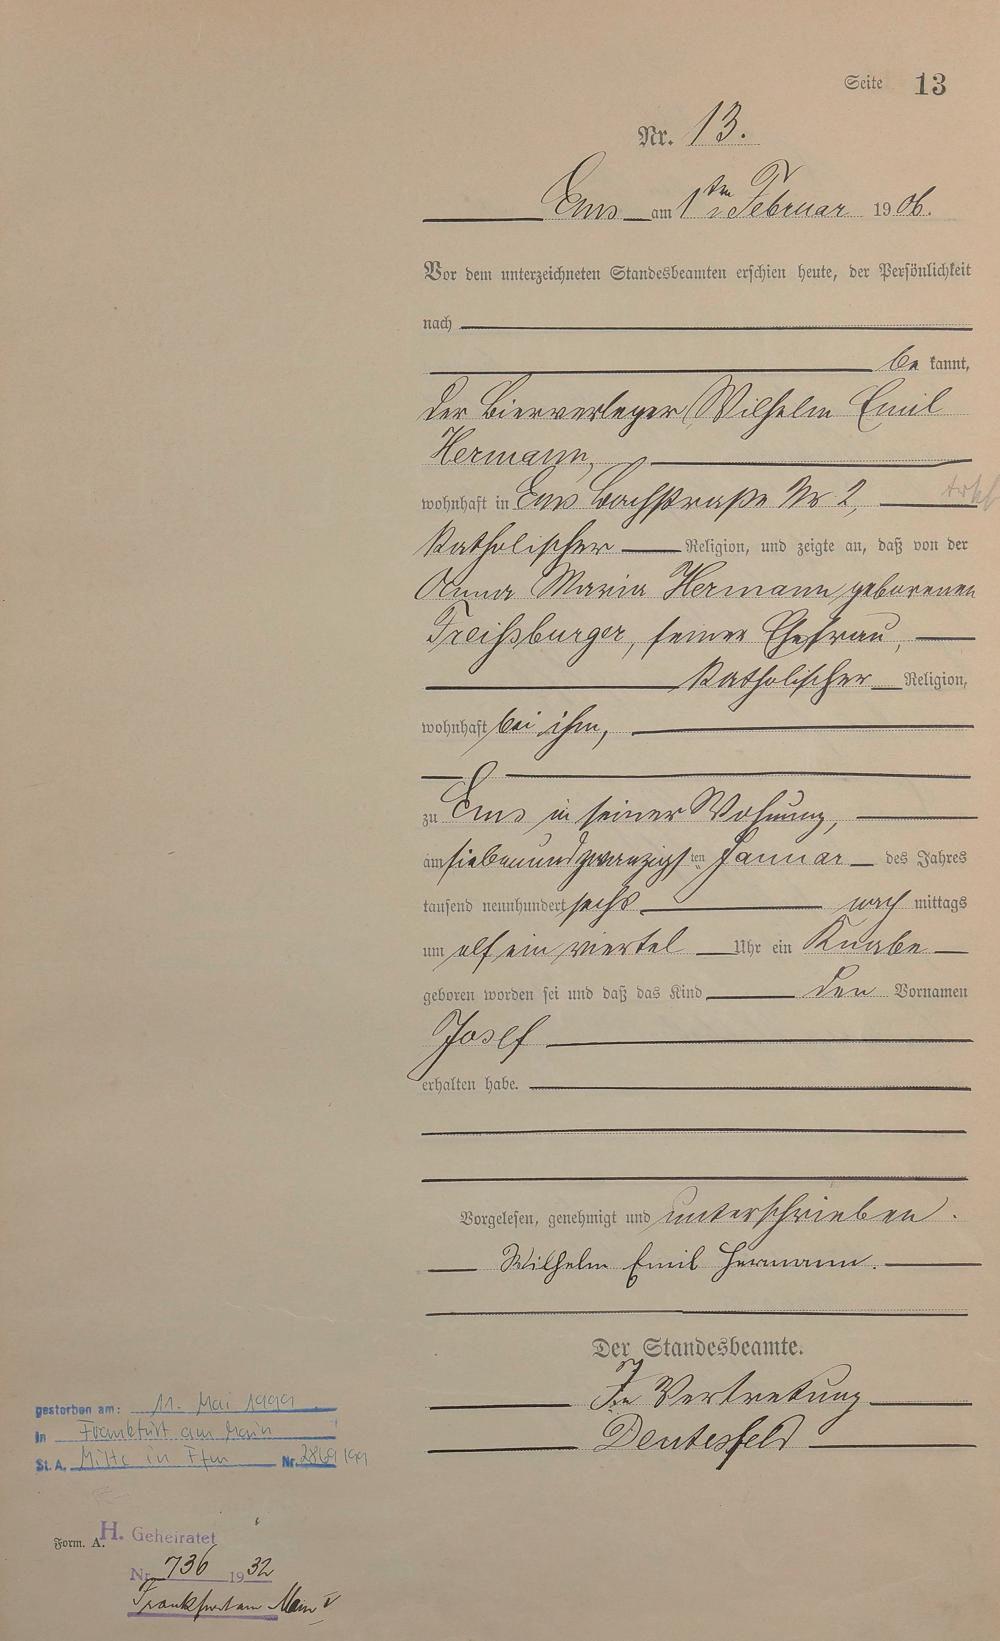 Seite 13
Nr. 13.
Ems am 1ten Februar 1906.
Vor dem unterzeichneten Standesbeamten erschien heute, der Persönlichkeit
nach
be kannt,
der Bierverleger Wilhelm Emil
Hermann,
wohnhaft in Ems Bachstraße Nr 2,
katholischer Religion, und zeigte an, daß von der
Anna Maria Hermann geborenen
Treißburger, seiner Ehefrau,
katholischer Religion,
wohnhaft bei ihm,
zu Ems in seiner Wohnung,
am siebenundzwanzigsten Januar des Jahres
tausend neunhundert sechs nach mittags
um elf ein viertel Uhr ein Knabe
geboren worden sei und daß das Kind den Vornamen
Josef
erhalten habe.
Vorgelesen, genehmigt und unterschrieben.
Wilhelm Emil Hermann.
Der Standesbeamte.
In Vertretung
gestorben am: 11. Mai 1999
in Frankfurt am Main
St.A. Mitte in Ffm Nr. 2869/99
Form. A.
H. Geheiratet
Nr. 736 1932
Frankfurt am Main V